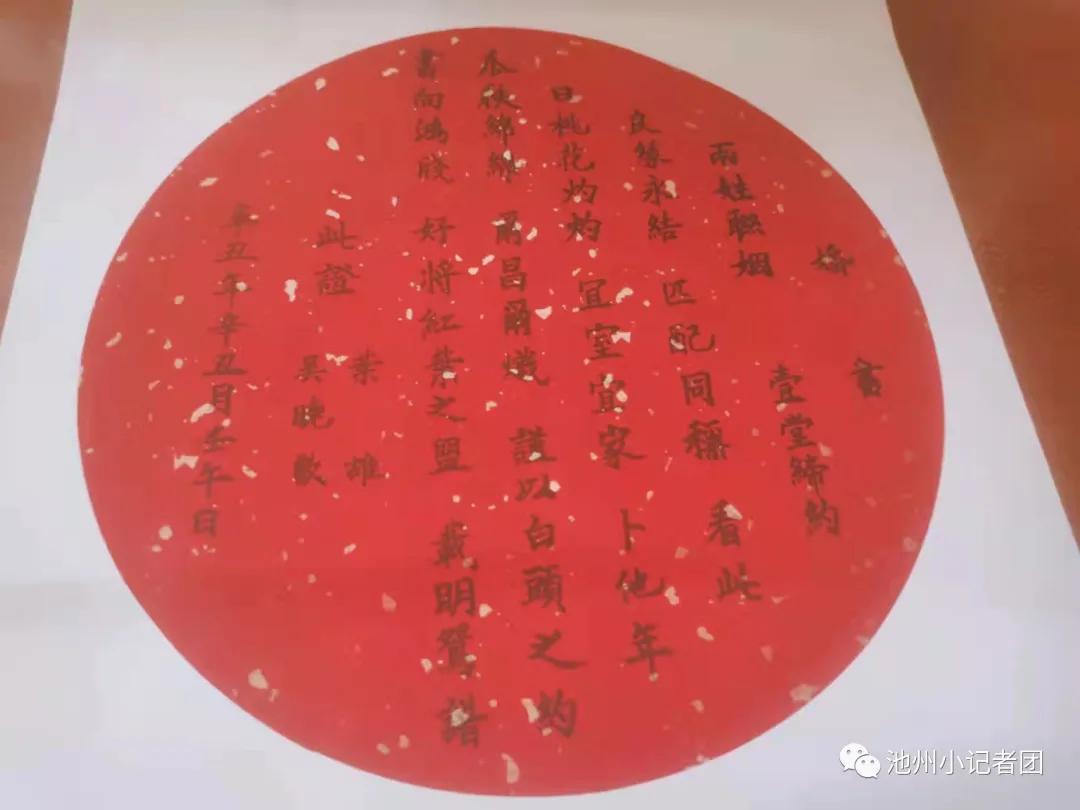 婚書
兩姓聯姻 壹堂締約
良緣永結 匹配同稱 看此
日桃花灼灼 宜室宜家 卜他年
瓜瓞綿綿 爾昌爾熾 謹以白頭之約
書向鴻牋 好將紅葉之盟 載明鴛譜
此證
葉雄
吳曉歡
辛丑年辛丑月壬午日
池州小记者团